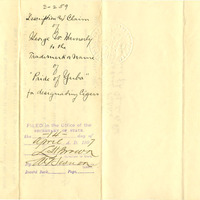 2-259
Description & Claim
of
George W. Hennedy
to the
Trademark or Name
of
"Pride of Yuba"
for designating Cigars
FILED in the Office of the
SECRETARY OF STATE
day of
April A.D. 1887
By
Page